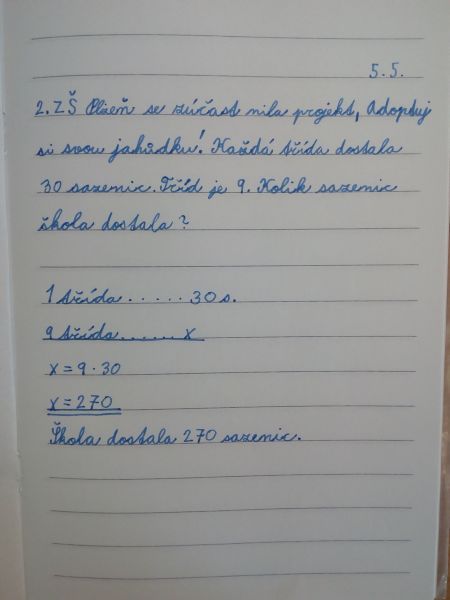 5.5.
2. ZŠ Plzeň se zúčast nila projekt, Adoptuj
si svou jahůdku! Každá třída dostala
30 sazenic. Tříd je 9. Kolik sazenic
škola dostala?
1 třída......30 s.
9 třída......x
x = 9 · 30
x = 270
Škola dostala 270 sazenic.